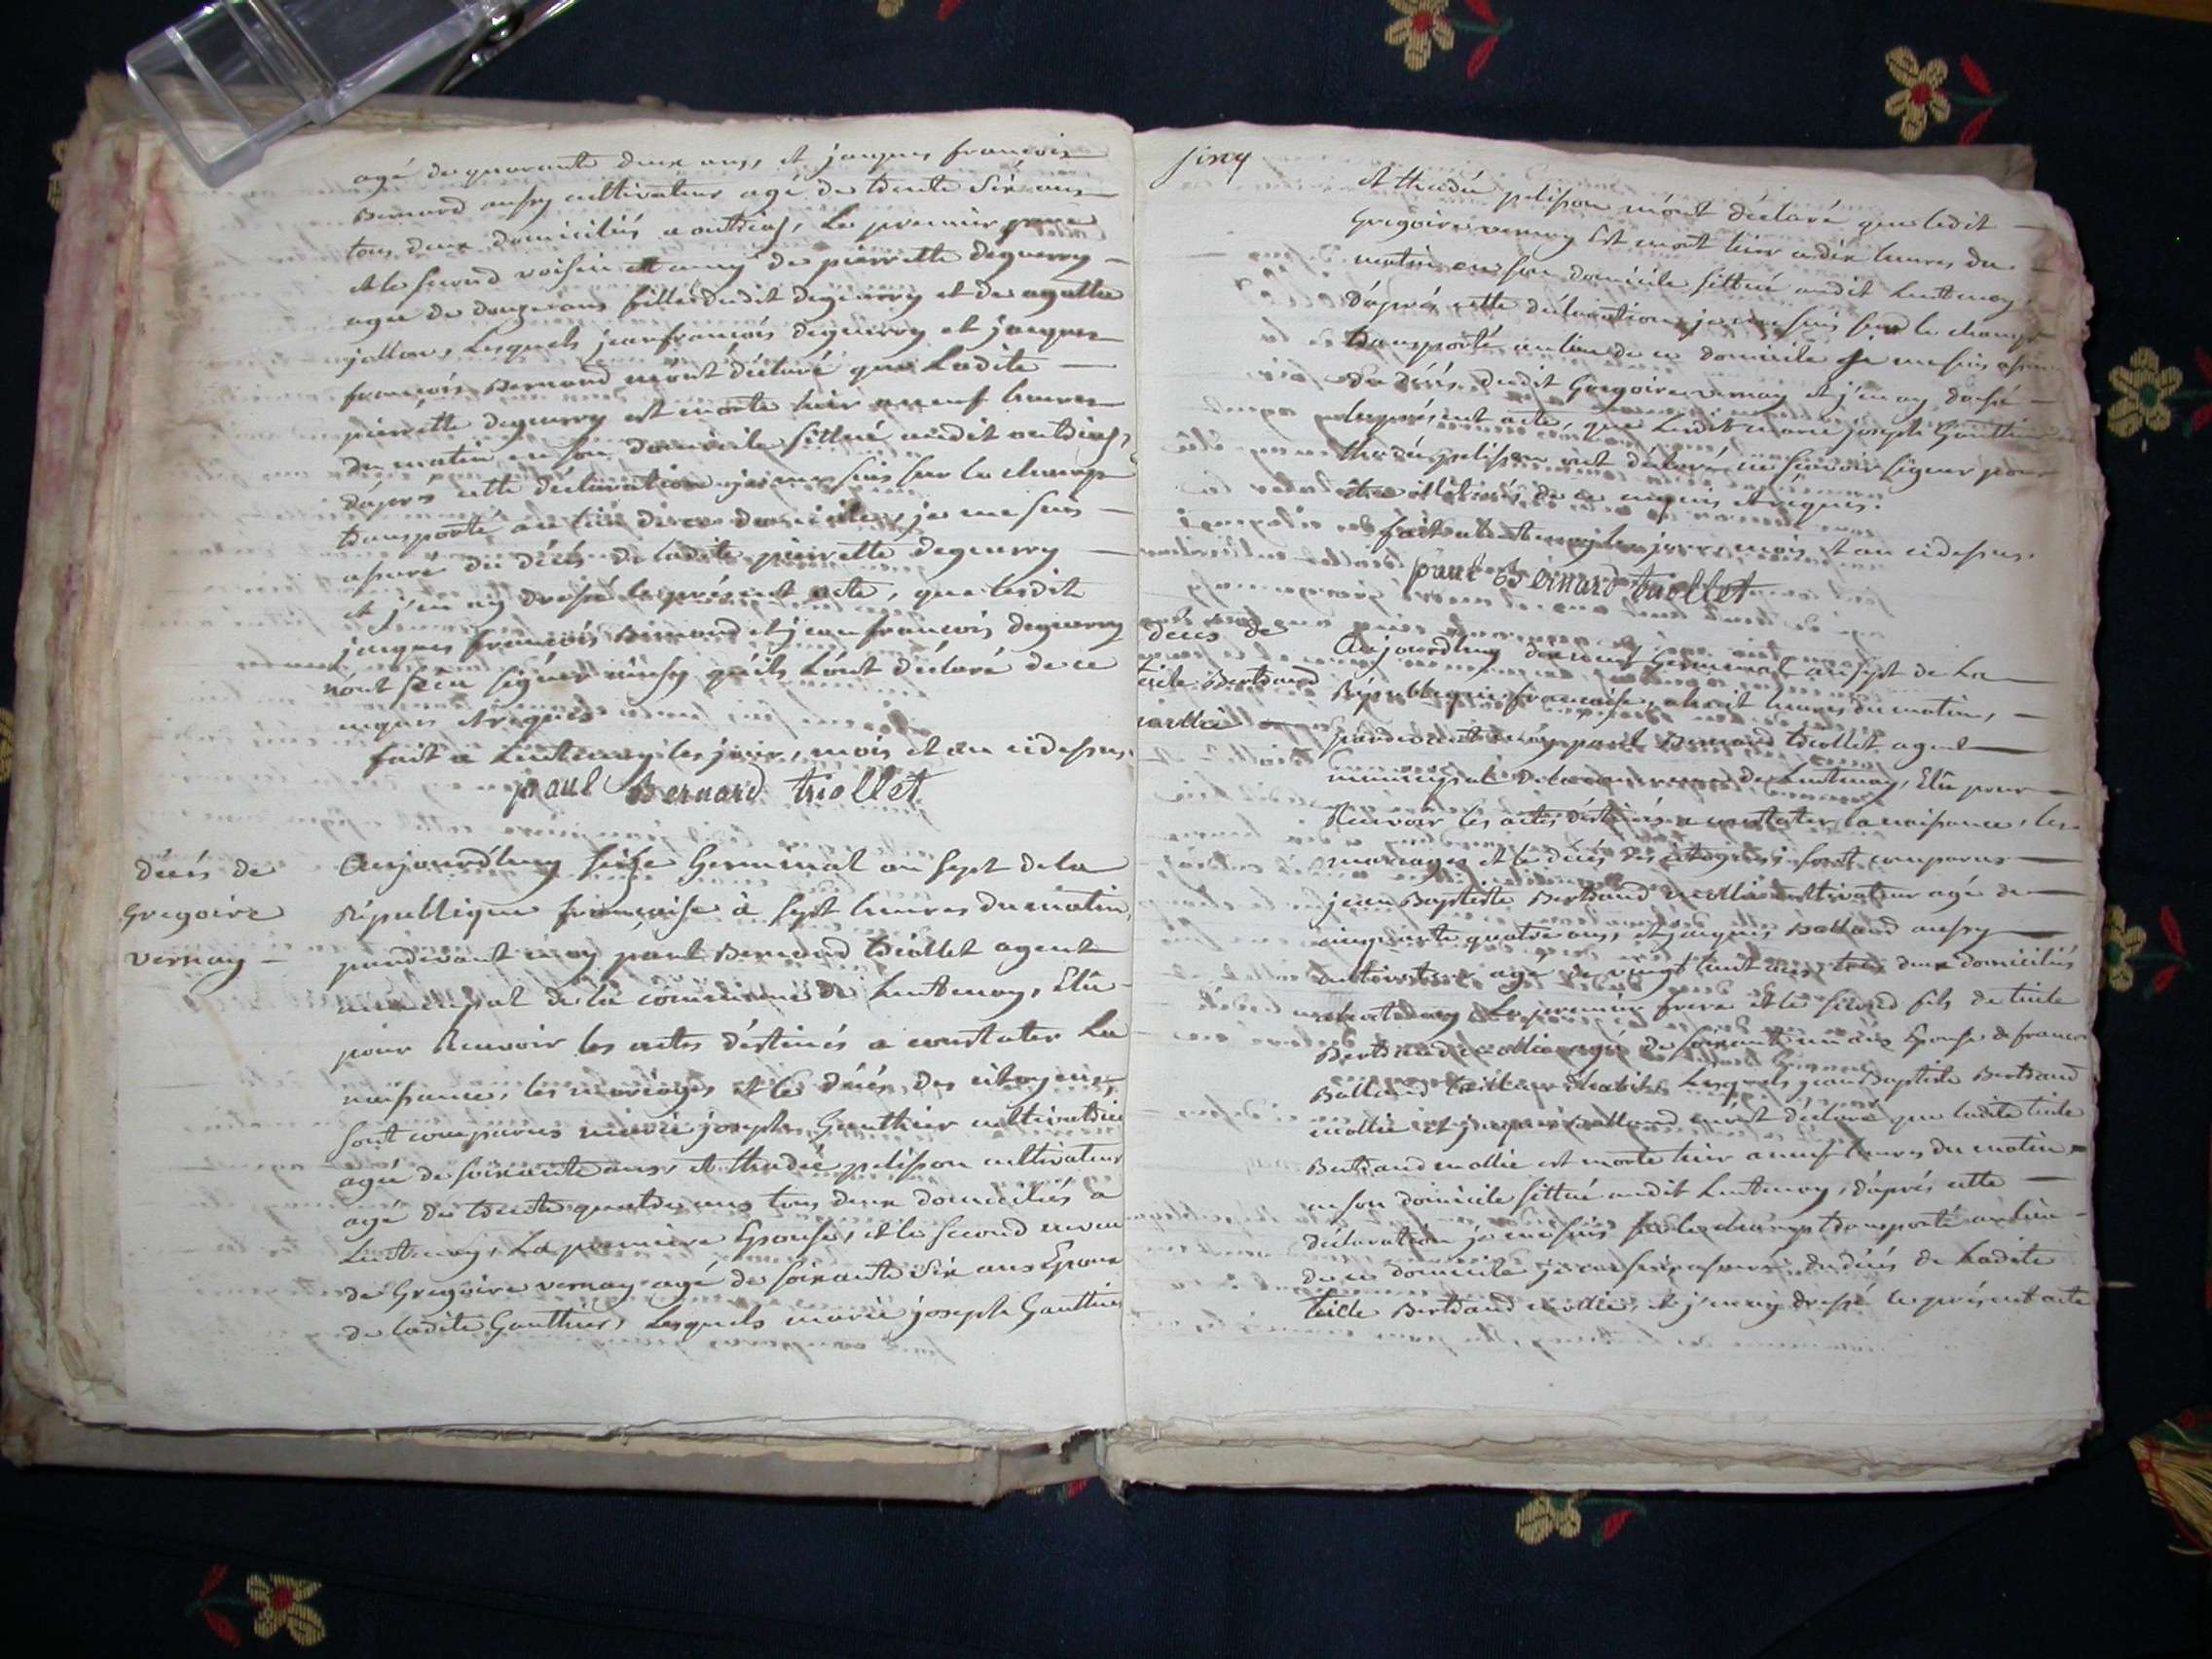 agé de quarante deux ans, et jacques francois
Bernard ausy cultivateur agé de trente six ans
tous deux domiciliés a outriaz, Le premier pere
et le second voisin et amy de pierrette deguerry
agée de douze ans fille dudit deguerry et de agathe
jollon, Lesquels jean francois deguerry et jacques
francois Bernard m'ont déclaré que Ladite
pierrette deguerry est morte hier a neuf heures
du matin en son domicile sittué audit outriaz,
d'aprés cette déclaration je me suis sur le champ
transporté au lieu de ce domicile, je me suis
assuré du décés de Ladite pierrette deguerry
et j'en ay dressé le présent acte, que lesdit
jacques francois Bernard et jean francois deguerry
n'ont sceu signer ainsy qu'ils L'ont déclaré de ce
enquis et requis
fait a Lentenay les jour, mois et an cidessus.
paul Bernard triollet
décés de
Gregoire
vernay
Aujourd'huy seize Germinal an sept de la
République française à sept heures du matin,
pardevant moy paul Bernard triollet agent
municipal de la commune de Lentenay, Elû
pour Recevoir les actes déstinés a constater La
naissance, les mariages et le décés des citoyens,
sont comparus marie joseph Gauthier cultivatrice
agée de soixante ans, et thadée pelisson cultivateur
agé de trente quatre ans tous deux domiciliés a
Lentenay, La premiere Epouse, et le second neveu
de Gregoire vernay agé de soixante six ans Epoux
de ladite Gauthier, Lesquels marie joseph Gauthier
et thadée pelisson m'ont déclaré que ledit
Gregoire vernay Est mort hier a dix heures du
matin en son domicile sittué audit Lentenay,
d'aprés cette déclaration je me suis sur le champ
transporté au lieu de ce domicile je me suis assuré
du décés dudit Gregoire vernay et j'en ay dressé
le présent acte, que Ladite marie joseph Gauthier
thadée pelisson ont déclaré ne scavoir signer pour
être illitérés de ce enquis et requis.
fait a Lentenay les jour, mois et an cidessus.
paul Bernard triollet
décés de
Bertrand
Aujourd'huy dixneuf Germinal an sept de La
République française, a huit heures du matin,
pardevant moy paul Bernard triollet agent
municipal de la commune de Lentenay, Elû pour
Recevoir les actes déstinés a constater la naissance, les
mariages et le décés des citoyens; sont comparus
jean Baptiste Bertrand mollie cultivateur agé de
cinquante quatre ans, et jacques Balland ausy
cultivateur agé de vingt huit ans, tous deux domiciliés
a Lentenay, Le premier frere et le second fils de
Bertrand mollie agée de soixante un ans Epouse de francois
Balland tailleur d'habits Lesquels jean Baptiste Bertrand
mollie et jacques Balland m'ont déclaré que ladite
Bertrand mollie est morte hier a neuf heures du matin
en son domicile sittué audit Lentenay, d'aprés cette
déclaration je me suis sur le champ transporté au lieu
de ce domicile je me suis assuré du décés de Ladite
Bertrand mollie, et j'en ay dressé le présent acte